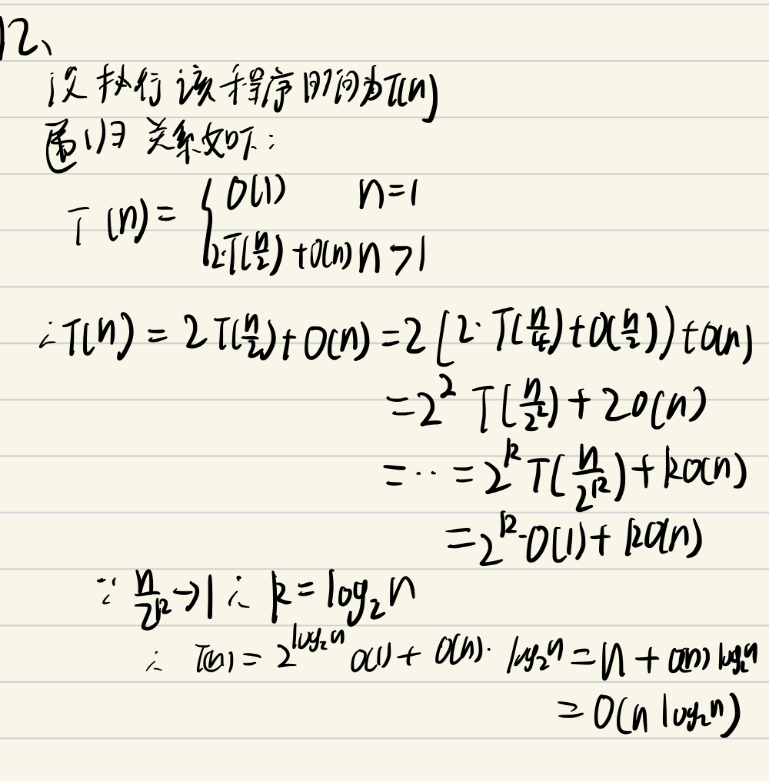 12、
设执行该程序时间为T(n)
递归关系如下:
T(n) = { O(1) n=1
2·T(n/2) + O(n) n>1
∴ T(n) = 2T(n/2) + O(n) = 2[2·T(n/4) + O(n/2)] + O(n)
= 2² T(n/2²) + 2O(n)
= ·· = 2^k T(n/2^k) + kO(n)
= 2^k·O(1) + kO(n)
∵ n/2^k → 1 ∴ k = log₂n
∴ T(n) = 2^(log₂n) O(1) + O(n)· log₂n = n + O(n) log₂n
= O(n log₂n)